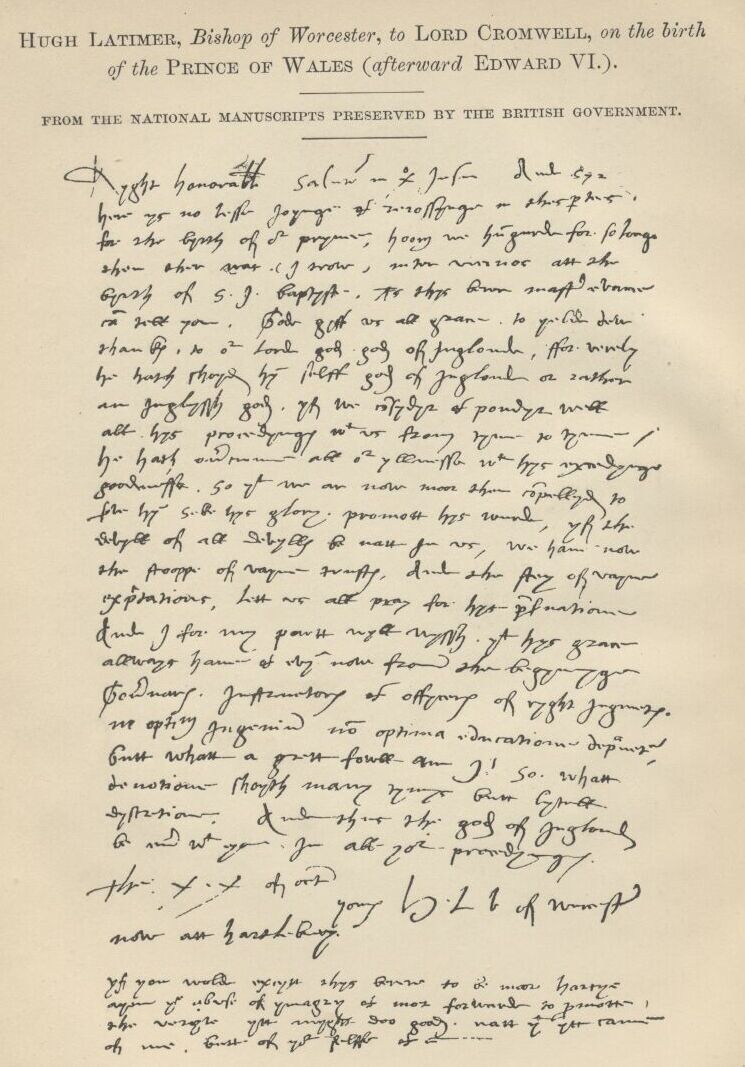 HUGH LATIMER, Bishop of Worcester, to LORD CROMWELL, on the birth
of the PRINCE OF WALES (afterward EDWARD VI.).
FROM THE NATIONAL MANUSCRIPTS PRESERVED BY THE BRITISH GOVERNMENT.
Ryght honorable Salutē in Xo Jesu And Syr
here ys no lesse Joynge & reiossynge in thes ptees
for the byrth of or prynce, hoom we hūgurde for so longe
then ther was (I trow) inter vicinos att the
byrth of S. J. baptyste. As thys berer mastr evance
cā tell you. Gode gyff us all grace. to yelde dew
thankꝭ, to or lord god. god of Inglonde, ffor verely
he hath shoyd hym selff god of Inglond or rather
an Inglyssh god. yf we cōsydyr & pondyr well
all hys procedyngs wt us from tyme to tyme /
he hath ovrcumme all or yllnesse wt hys excedynge
goodnesse. So yt we ar now moor then cōpellyd to
serve hym seke hys glory. promott hys wurde, yf the
devyll of all devylls be natt in us, we have now
the stoppe of vayne trusts, And the stey of vayne
expectations, lett us all pray for hys pservatione
And I for my partt wyll wyssh. yt hys grace
allways have & evyn now from the begynynge
Govrnars. Instructors & offycers of ryght Jugmets.
ne optimū Ingeniū nō optima educatione depravet
butt whatt a grett fowll am I! So. whatt
devotione shoyth many tyms butt lytell
dyscretione. And thus the god of Inglond
be evr wt you. In all yor procedyngs.
The. X.X of octr
yours H. L. B of wurcestr
now att hartlebury.
yf you wolde excytt thys berer to be moor hartye
agen ye abuse of ymagry & mor forwarde to pmotte
the veryte ytt myght doo good. natt yt ytt came
of me. butt of yor selffe &c